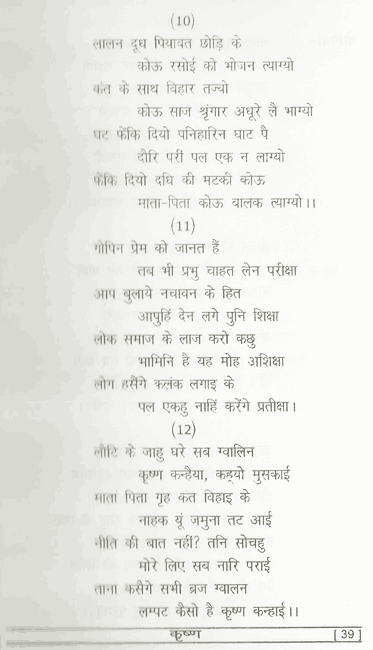 (10)
लालन दूध पियावत छोड़ि के
कोऊ रसोई को भोजन त्याग्यो
कंत के साथ विहार तज्यो
कोऊ साज श्रृंगार अधूरे लै भाग्यो
घट फेंकि दियो पनिहारिन घाट पै
दौरि परीं पल एक न लाग्यो
फेंकि दियो दधि की मटकी कोऊ
माता-पिता कोऊ बालक त्याग्यो।।
(11)
गोपिन प्रेम को जानत हैं
तब भी प्रभु चाहत लेन परीक्षा
आप बुलाये नचावन के हित
आपुहिं देन लगे पुनि शिक्षा
लोक समाज के लाज करो कछु
भामिनि है यह मोह अशिक्षा
लोग हसैंगे कलंक लगाइ के
पल एकहु नाहिं करेंगे प्रतीक्षा।
(12)
लौटि के जाहु घरे सब ग्वालिन
कृष्ण कन्हैया, कह्यो मुसकाई
माता पिता गृह कंत विहाइ के
नाहक यूं जमुना तट आई
नीति की बात नहीं? तनि सोचहु
मोरे लिए सब नारि पराई
ताना कसैगे सभी ब्रज ग्वालन
लम्पट कैसो है कृष्ण कन्हाई।।
कृष्ण [ 39 ]